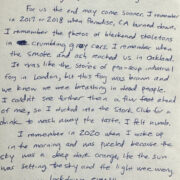 For us the end may come sooner. I remember
in 2017 or 2018 when Paradise, CA burned down.
I remember the photos of blackened skeletons
in crumbling grey cars. I remember when
the smoke and ash reached us in Oakland.
It was like the stories of pre-war industrial
fog in London, but this fog was brown and
we knew we were breathing in dead people.
I couldn't see farther than a few feet ahead
of me, so I ducked into the Stork Club for
drink to wash away the taste. I felt numb.
I remember in 2020 when I woke up
in the morning and was puzzled because the
sky was a deep dark orange, like the sun
was setting the sky and the light were every